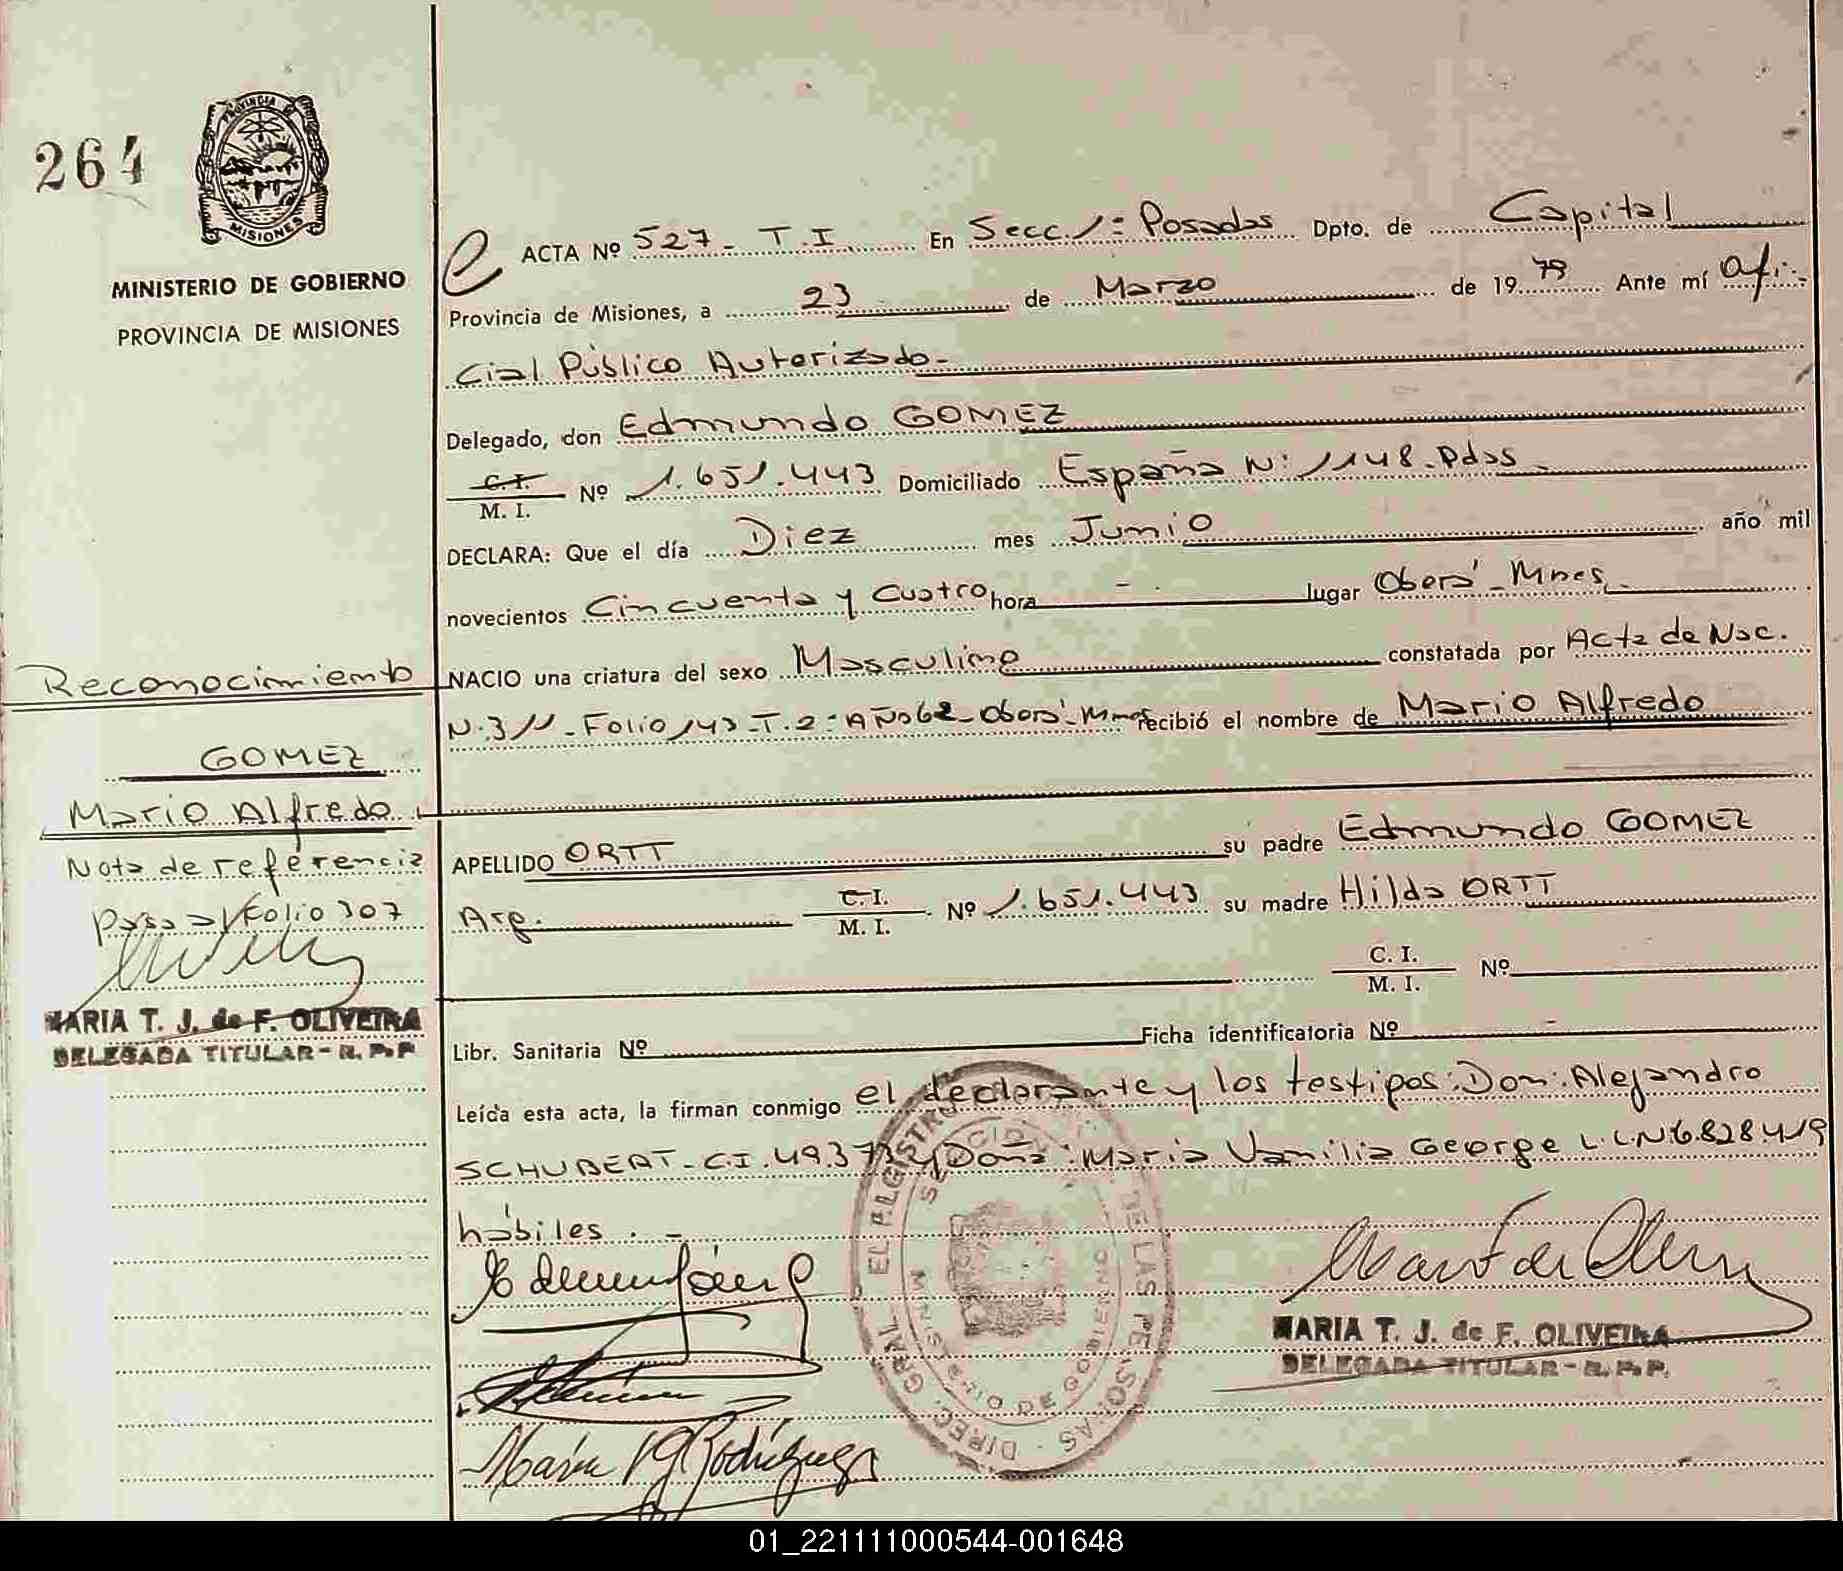 264
PROVINCIA DE
MISIONES
MINISTERIO DE GOBIERNO
PROVINCIA DE MISIONES
ACTA Nº 527- T.I. En Secc. 1: Posadas Dpto. de Capital
Provincia de Misiones, a 23 de Marzo de 1979 Ante mí Ofi-
cial Público Autorizado-
Delegado, don Edmundo GOMEZ
C.I. / M. I. Nº 1.651.443 Domiciliado España Nº 1148-Pdas-
DECLARA: Que el día Diez mes Junio año mil
novecientos Cincuenta y Cuatro hora - lugar Oberá-Mnes-
Reconocimiento
NACIO una criatura del sexo Masculino constatada por Acta de Nac.
N.311-Folio 143-T.2: Año 62-Oberá-Mnes recibió el nombre de Mario Alfredo
GOMEZ
Mario Alfredo
Nota de referencia
pasa al Folio 307
APELLIDO ORTT su padre Edmundo GOMEZ
Arg. C.I. / M. I. Nº 1.651.443 su madre Hilda ORTT
C. I. / M. I. Nº
MARIA T. J. de F. OLIVEIRA
DELEGADA TITULAR - R. P. P.
Libr. Sanitaria Nº Ficha identificatoria Nº -
Leída esta acta, la firman conmigo el declarante y los testigos: Don: Alejandro
SCHUBERT-C.I. 49.373 y Doña: Maria Vanilia George L.C.N 6.828.419
hábiles.-
DIREC. GRAL. EL REGISTRO DE LAS PERSONAS
MINISTERIO DE GOBIERNO
MISIONES
MARIA T. J. de F. OLIVEIRA
DELEGADA TITULAR - R. P. P.
María V G Rodríguez
01_221111000544-001648